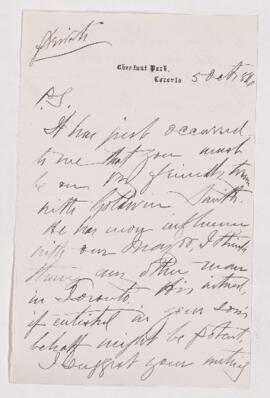 Private
Chestnut Park,
Toronto 5 Oct
P.S.
It has just occurred
to me that you must
be on v. friendly terms
with Goldwin Smith.
He has more influence
with our Mayor, I think,
than any other man
in Toronto. His interest,
if enlisted in your son's
behalf might be potent.
I suggest your writing